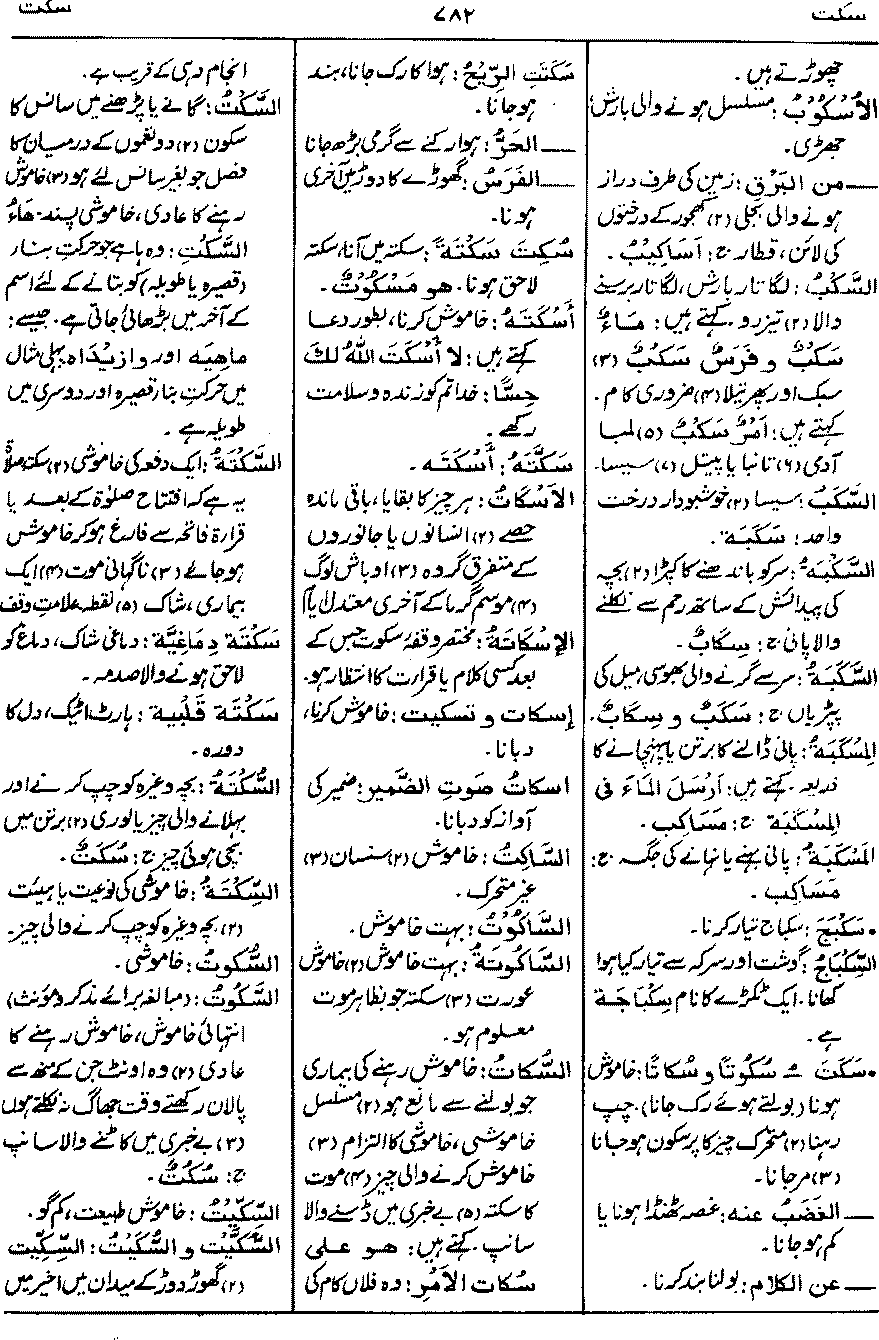 سکت
۷۸۲
سکت
چھوڑتے ہیں۔
الأُسْكُوْبُ: مسلسل ہونے والی بارش،
جھڑی۔
— من البَرْقِ: زمین کی طرف دراز
ہونے والی بجلی (۲) کھجور کے درختوں
کی لائن، قطار ج: أساكِيْبُ۔
السَّكْبُ: لگاتار بارش، لگاتار برسنے
والا (۲) تیز رو۔ کہتے ہیں: مَاءٌ
سَكْبٌ و فَرَسٌ سَكْبٌ (۳)
سبک اور پھرتیلا (۴) ضروری کام۔
کہتے ہیں: أمْرٌ سَكْبٌ (۵) لمبا
آدمی (۶) تانبا یا پیتل (۷) سیسا۔
السَّكَبُ: سیسا (۲) خوشبودار درخت
واحد: سَكَبَة۔
السَّكْبَةُ: سر کو باندھنے کا کپڑا (۲) بچہ
کی پیدائش کے ساتھ رحم سے نکلنے
والا پانی ج: سِكابٌ۔
السَّكَبَةُ: سر سے گرنے والی بھوسی، میل کی
پپڑیاں ج: سَكَبٌ و سِكَابٌ۔
المِسْكَبَةُ: پانی ڈالنے کا برتن یا پہنچانے کا
ذریعہ۔ کہتے ہیں: أرْسَلَ المَاءَ فی
المِسْكَبَة ج: مَسَاكِب۔
المَسْكَبَةُ: پانی بہنے یا نہانے کی جگہ ج:
مَسَاكِب۔
• سَكْبَجَ: سکباج تیار کرنا۔
السِّكْبَاجُ: گوشت اور سرکہ سے تیار کیا ہوا
کھانا۔ ایک ٹکڑے کا نام سِكْبَاجَة
ہے۔
• سَكَتَ ـُ سُكُوتًا و سُكاتًا: خاموش
ہونا (بولتے ہوئے رک جانا) چپ
رہنا (۲) متحرک چیز کا پرسکون ہو جانا
(۳) مر جانا۔
— الغَضَبُ عنه: غصہ ٹھنڈا ہونا یا
کم ہو جانا۔
— عن الكلام: بولنا بند کرنا۔
سَكَتَتِ الرِّيْحُ: ہوا کا رک جانا، بند
ہو جانا۔
— الحَرُّ: ہوا رکنے سے گرمی بڑھ جانا
— الفَرَسُ: گھوڑے کا دوڑ میں آخری
ہونا۔
سُكِتَ سَكْتَةً: سکتہ میں آنا، سکتہ
لاحق ہونا۔ هو مَسْكُوْتٌ۔
أَسْكَتَهُ: خاموش کرنا، بطور دعا
کہتے ہیں: لا أَسْكَتَ اللهُ لكَ
حِسًّا: خدا تم کو زندہ و سلامت
رکھے۔
سَكَّتَهُ: أَسْكَتَه۔
الأَسْكَاتُ: ہر چیز کا بقایا، باقی ماندہ
حصے (۲) انسانوں یا جانوروں
کے متفرق گروہ (۳) اوباش لوگ
(۴) موسم گرما کے آخری معتدل ایام
الإسْكاتَةُ: مختصر وقفۂ سکوت جس کے
بعد کسی کلام یا قرارت کا انتظار ہو۔
إسكات و تسكيت: خاموش کرنا،
دبانا۔
اسكاتُ صَوتِ الضَّمير: ضمیر کی
آواز کو دبانا۔
السَّاكِتُ: خاموش (۲) سنسان (۳)
غیر متحرک۔
السَّاكُوْتُ: بہت خاموش۔
السَّاكُوتَةُ: بہت خاموش (۲) خاموش
عورت (۳) سکتہ جو بظاہر موت
معلوم ہو۔
السُّكاتُ: خاموش رہنے کی بیماری
جو بولنے سے مانع ہو (۲) مسلسل
خاموشی، خاموشی کا التزام (۳)
خاموش کرنے والی چیز (۴) موت
کا سکتہ (۵) بے خبری میں ڈسنے والا
سانپ۔ کہتے ہیں: هو على
سُكات الأمْرِ: وہ فلاں کام کی
انجام دہی کے قریب ہے۔
السَّكْتُ: گانے یا پڑھنے میں سانس کا
سکون (۲) دو نغموں کے درمیان کا
فصل جو بغیر سانس لئے ہو (۳) خاموش
رہنے کا عادی، خاموشی پسند۔ هاءُ
السَّكْتِ: وہ ہا ہے جو حرکتِ بنار
(قصیرہ یا طویلہ) کو بتانے کے لئے اسم
کے آخر میں بڑھائی جاتی ہے۔ جیسے:
ماهِيَه اور وازيداه پہلی مثال
میں حرکتِ بنار قصیرہ اور دوسری میں
طویلہ ہے۔
السَّكْتَةُ: ایک دفعہ کی خاموشی (۲) سکتہ صلاۃ
یہ ہے کہ افتتاح صلوٰۃ کے بعد یا
قرارۃ فاتحہ سے فارغ ہو کر خاموش
ہو جائے (۳) ناگہانی موت (۴) ایک
بیماری، شاک (۵) نقطہ علامتِ وقف
سَكْتَة دِمَاغِيَّة: دماغی شاک، دماغ کو
لاحق ہونے والا صدمہ۔
سَكْتَة قَلْبِية: ہارٹ اٹیک، دل کا
دورہ۔
السُّكْتَةُ: بچہ وغیرہ کو چپ کرنے اور
بہلانے والی چیز یا لوری (۲) برتن میں
بچی ہوئی چیز ج: سُكَتٌ۔
السِّكْتَةُ: خاموشی کی نوعیت یا ہیئت
(۲) بچہ وغیرہ کو چپ کرنے والی چیز۔
السُّكُوتُ: خاموشی۔
السَّكُوتُ: (مبالغہ برائے مذکر و مؤنث)
انتہائی خاموش، خاموش رہنے کا
عادی (۲) وہ اونٹ جن کے منھ سے
پالان رکھتے وقت جھاگ نہ نکلتے ہوں
(۳) بے خبری میں کاٹنے والا سانپ
ج: سُكُتٌ۔
السِّكِّيتُ: خاموش طبیعت، کم گو۔
السُّكَّيْت و السُّكَيْتُ: السِّكِّيت
(۲) گھوڑ دوڑ کے میدان میں اخیر میں